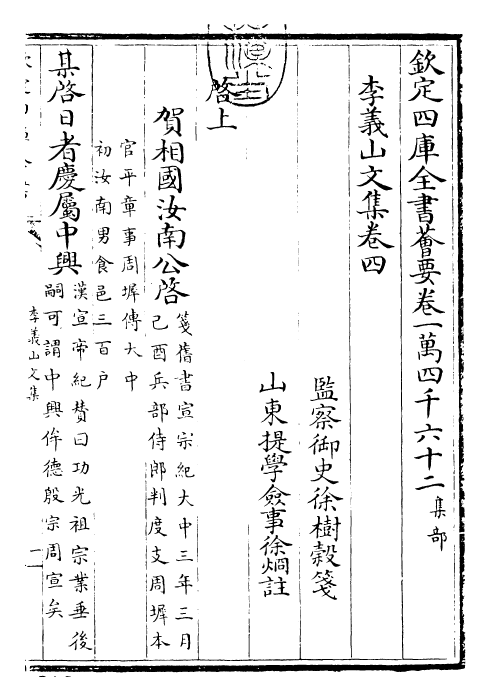 欽定四庫全書薈要卷一萬四千六十二 集部
李義山文集卷四
監察御史徐樹榖箋
山東提學僉事徐烱註
啓上
賀相國汝南公啓
箋舊書宣宗紀大中三年三月
己酉兵部侍郎判度支周墀本
官平章事周墀傳大中
初汝南男食邑三百户
某啓日者慶屬中興
漢宣帝紀賛曰功光祖宗業垂後
嗣可謂中興侔德殷宗周宣矣
李義山文集
一